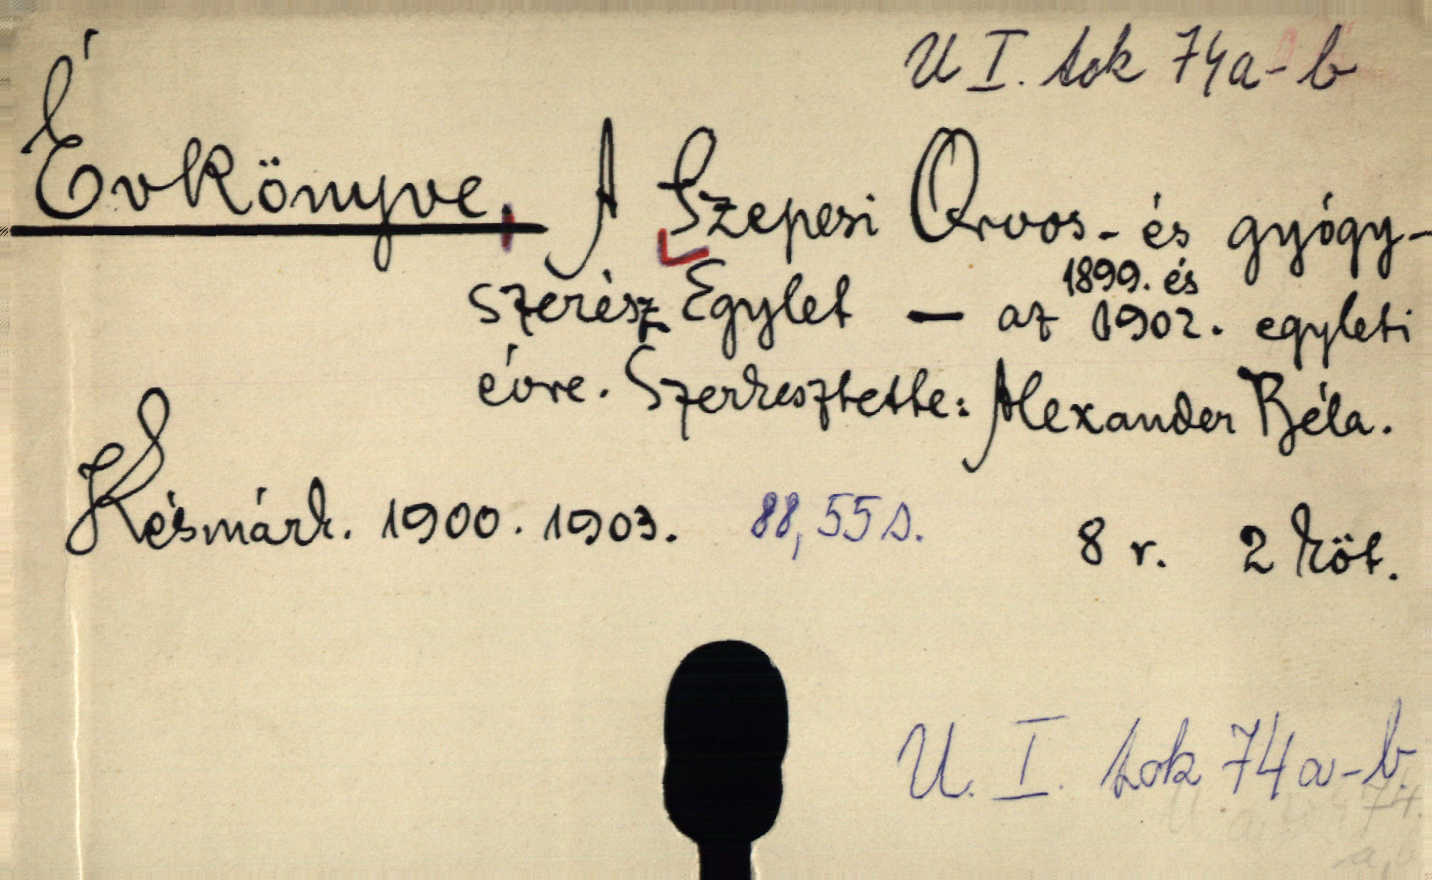 U I. tok 74a-b
Évkönyve, A Szepesi Orvos- és gyógy-
szerész Egylet — az 1899. és 1902. egyleti
évre. Szerkesztette: Alexander Béla.
Késmárk. 1900. 1903. 88, 55 s. 8 r. 2 köt.
U. I. tok 74a-b.